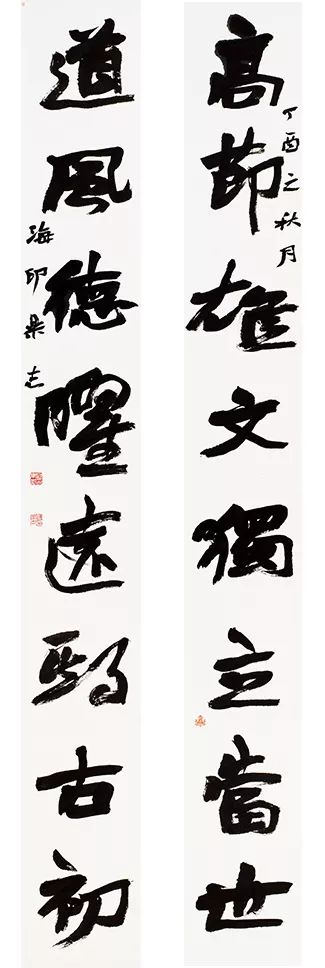 高節雄文獨立當世
丁酉之秋月
道風德曜遠古初
海印志